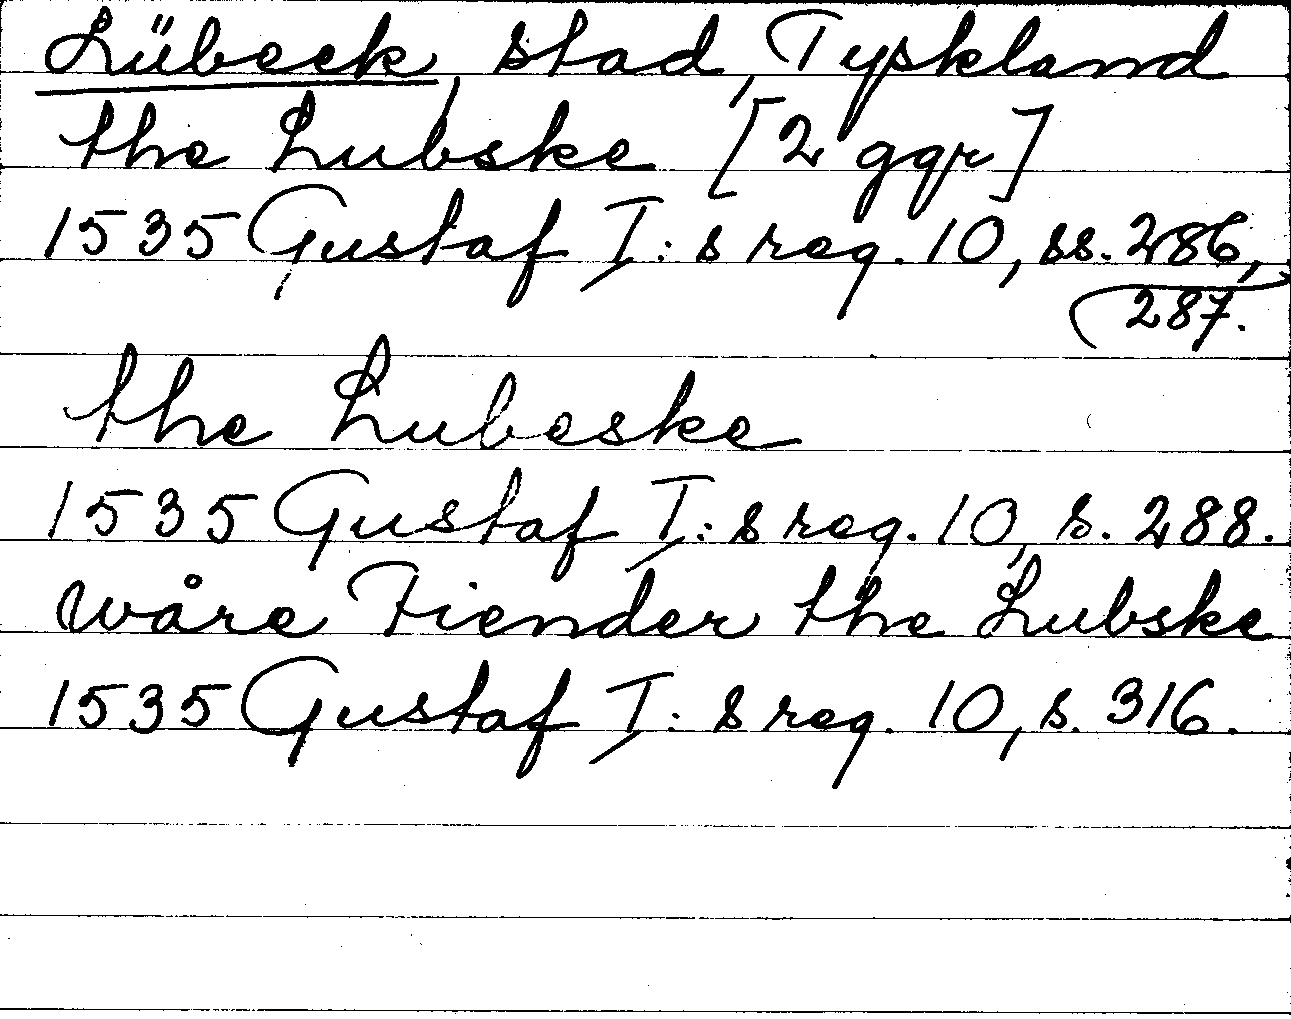 Lübeck, stad, Tyskland
the Lubske [2 ggr]
1535 Gustaf I:s reg. 10, ss. 286,
287.
the Lubeske
1535 Gustaf I:s reg. 10, s. 288.
wåre Fiender the Lubske
1535 Gustaf I:s reg. 10, s. 316.